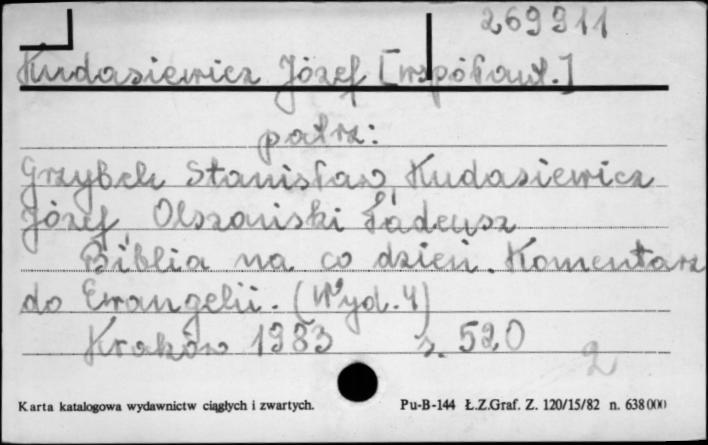 269911
Kudasiewicz Józef [współaut.]
patrz:
Grzybek Stanisław, Kudasiewicz
Józef, Olszański Tadeusz
Biblia na co dzień. Komentarz
do Ewangelii. (Wyd. 4)
Kraków 1983 s. 520
2
Karta katalogowa wydawnictw ciągłych i zwartych. Pu-B-144 Ł.Z.Graf. Z. 120/15/82 n. 638000